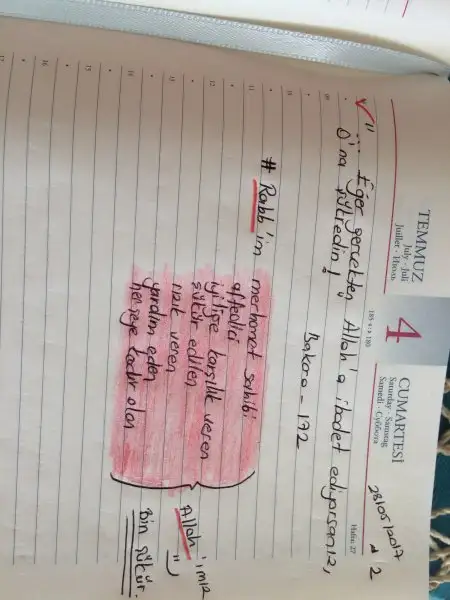 TEMMUZ
July - Juli
Juillet - Июль
4
185 + x 180
CUMARTESİ
Saturday - Samstag
Samedi - Суббота
Hafta: 27
28/05/2017
2
" ... Eğer gerçekten Allah'a ibadet ediyorsanız,
O'na şükredin!
Bakara - 172
# Rabb'im
merhamet sahibi
affedici
iyiliğe karşılık veren
şükür edilen
rızık veren
yardım eden
her şeye kadir olan
Allah'ımız
Bin şükür.
09
10
11
12
13
14
15
16
17